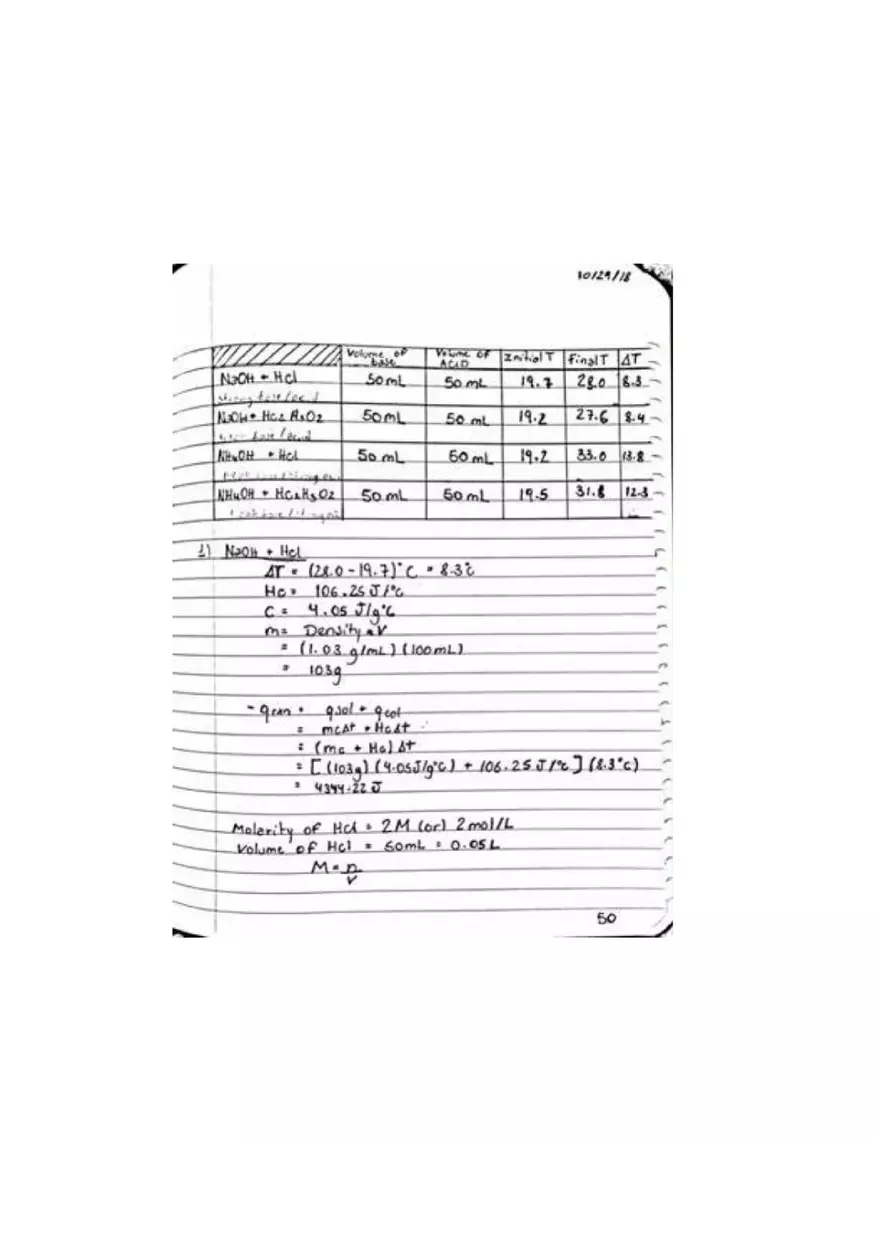 10/29/18
Volume of base Volume of ACID Initial T Final T ΔT
NaOH + HCl 50mL 50mL 19.7 28.0 8.3
strong base/acid
NaOH + HC2H3O2 50mL 50mL 19.2 27.6 8.4
base/acid
NH4OH + HCl 50mL 50mL 19.2 33.0 13.8
NH4OH + HC2H3O2 50mL 50mL 19.5 31.8 12.3
1) NaOH + HCl
ΔT = (28.0-19.7)°C = 8.3°C
Hc = 106.25 J/°C
C = 4.05 J/g°C
m = Density • V
= (1.03 g/mL)(100mL)
= 103g
-qrxn = qsol + qcal
= mcΔt + HcΔt
= (mc + Hc) Δt
= [(103g)(4.05J/g°C) + 106.25 J/°C](8.3°C)
= 4344.22 J
Molarity of HCl = 2M (or) 2mol/L
Volume of HCl = 50mL = 0.05L
M = n/V
50